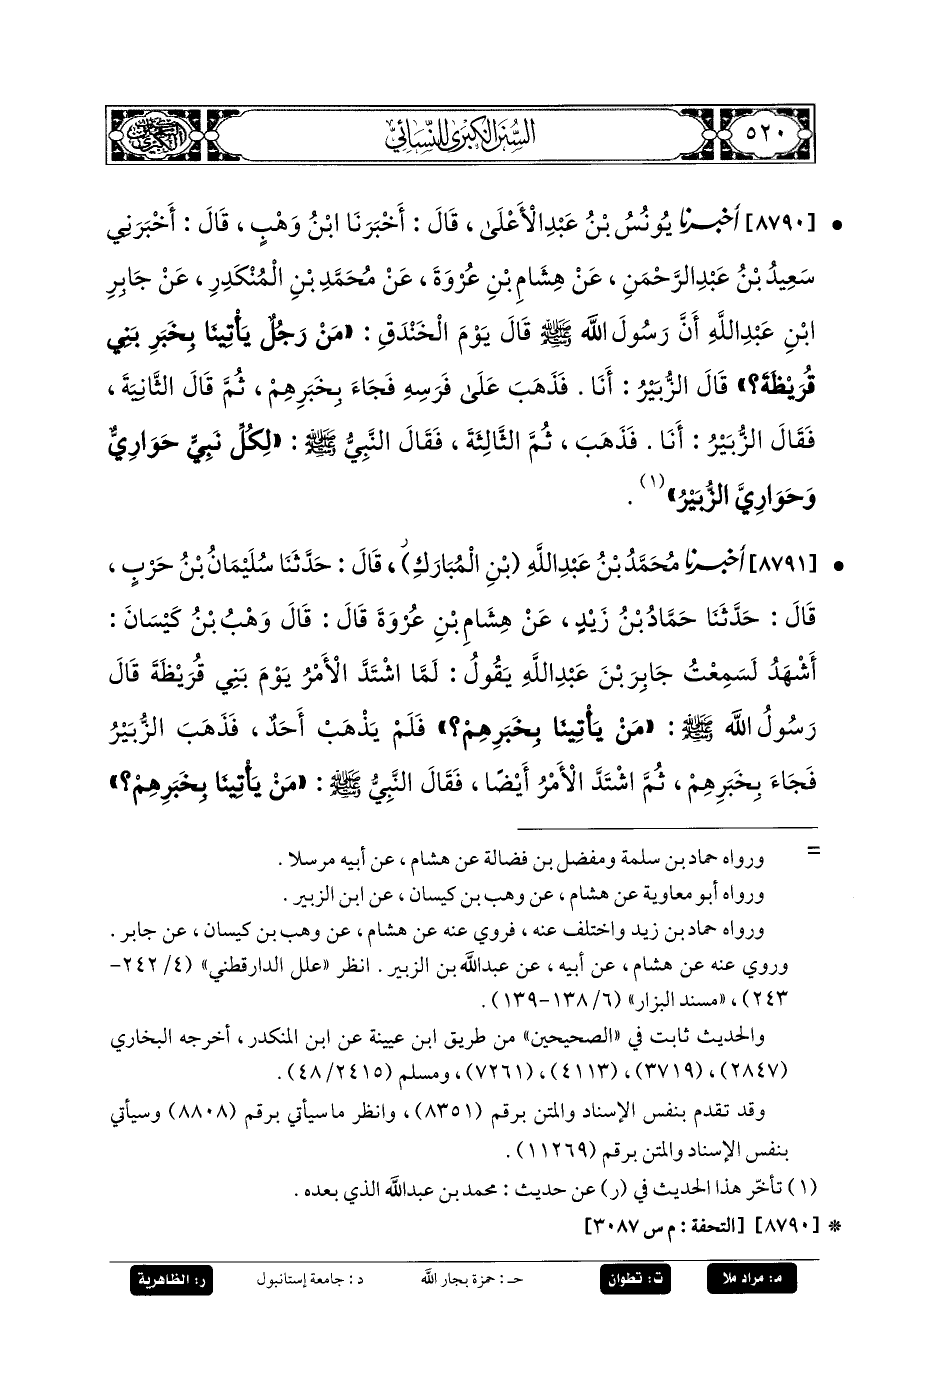 ٥٢٠
السُّنَنُ الكُبْرَى لِلنَّسَائِيِّ
• [٨٧٩٠] أَخْبَرَنَا يُونُسُ بْنُ عَبْدِالْأَعْلَى ، قَالَ : أَخْبَرَنَا ابْنُ وَهْبٍ ، قَالَ : أَخْبَرَنِي
سَعِيدُ بْنُ عَبْدِالرَّحْمَنِ ، عَنْ هِشَامِ بْنِ عُرْوَةَ ، عَنْ مُحَمَّدِ بْنِ الْمُنْكَدِرِ ، عَنْ جَابِرِ
ابْنِ عَبْدِاللَّهِ أَنَّ رَسُولَ اللَّه ﷺ قَالَ يَوْمَ الْخَنْدَقِ : «مَنْ رَجُلٌ يَأْتِينَا بِخَبَرِ بَنِي
قُرَيْظَةَ؟» قَالَ الزُّبَيْرُ : أَنَا . فَذَهَبَ عَلَى فَرَسِهِ فَجَاءَ بِخَبَرِهِمْ ، ثُمَّ قَالَ الثَّانِيَةَ ،
فَقَالَ الزُّبَيْرُ : أَنَا . فَذَهَبَ ، ثُمَّ الثَّالِثَةَ ، فَقَالَ النَّبِيُّ ﷺ : «لِكُلِّ نَبِيٍّ حَوَارِيٌّ
وَحَوَارِيَّ الزُّبَيْرُ»(١) .
• [٨٧٩١] أَخْبَرَنَا مُحَمَّدُ بْنُ عَبْدِاللَّهِ (بْنِ الْمُبَارَكِ)ر ، قَالَ : حَدَّثَنَا سُلَيْمَانُ بْنُ حَرْبٍ ،
قَالَ : حَدَّثَنَا حَمَّادُ بْنُ زَيْدٍ ، عَنْ هِشَامِ بْنِ عُرْوَةَ قَالَ : قَالَ وَهْبُ بْنُ كَيْسَانَ :
أَشْهَدُ لَسَمِعْتُ جَابِرَ بْنَ عَبْدِاللَّهِ يَقُولُ : لَمَّا اشْتَدَّ الْأَمْرُ يَوْمَ بَنِي قُرَيْظَةَ قَالَ
رَسُولُ اللَّه ﷺ : «مَنْ يَأْتِينَا بِخَبَرِهِمْ؟» فَلَمْ يَذْهَبْ أَحَدٌ ، فَذَهَبَ الزُّبَيْرُ
فَجَاءَ بِخَبَرِهِمْ ، ثُمَّ اشْتَدَّ الْأَمْرُ أَيْضًا ، فَقَالَ النَّبِيُّ ﷺ : «مَنْ يَأْتِينَا بِخَبَرِهِمْ؟»
= ورواه حماد بن سلمة ومفضل بن فضالة عن هشام ، عن أبيه مرسلا .
ورواه أبو معاوية عن هشام ، عن وهب بن كيسان ، عن ابن الزبير .
ورواه حماد بن زيد واختلف عنه ، فروي عنه عن هشام ، عن وهب بن كيسان ، عن جابر .
وروي عنه عن هشام ، عن أبيه ، عن عبدالله بن الزبير . انظر «علل الدارقطني» (٤/ ٢٤٢-
٢٤٣) ، «مسند البزار» (٦/ ١٣٨-١٣٩) .
والحديث ثابت في «الصحيحين» من طريق ابن عيينة عن ابن المنكدر ، أخرجه البخاري
(٢٨٤٧) ، (٣٧١٩) ، (٤١١٣) ، (٧٢٦١) ، ومسلم (٤٨/٢٤١٥) .
وقد تقدم بنفس الإسناد والمتن برقم (٨٣٥١) ، وانظر ما سيأتي برقم (٨٨٠٨) وسيأتي
بنفس الإسناد والمتن برقم (١١٢٦٩) .
(١) تأخّر هذا الحديث في (ر) عن حديث : محمد بن عبدالله الذي بعده .
* [٨٧٩٠] [التحفة : م س ٣٠٨٧]
م: مراد ملا ت: تطوان حـ : حمزة بجار الله د : جامعة إستانبول ر: الظاهرية